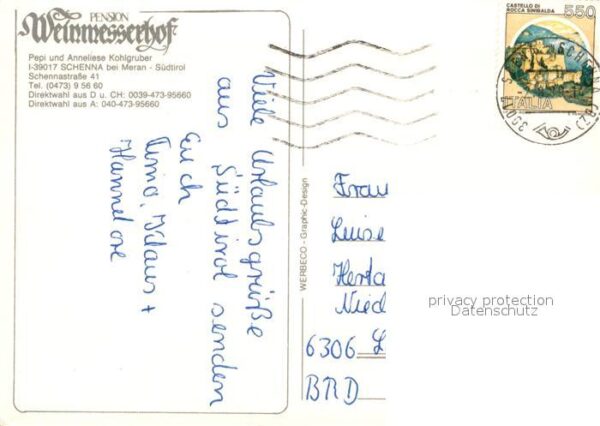 PENSION
Weinmesserhof
Pepi und Anneliese Kohlgruber
I-39017 SCHENNA bei Meran - Südtirol
Schennastraße 41
Tel. (0473) 9 56 60
Direktwahl aus D u. CH: 0039-473-95660
Direktwahl aus A: 040-473-95660
Viele Urlaubsgrüße
aus Südtirol senden
Euch
Timo, Klaus +
Hannelore
WERBECO - Graphic-Design
CASTELLO DI
ROCCA SINIBALDA
550
ITALIA
SCHENNA
39017
Frau
Luise
Herta
Nied
6306 L
BRD
privacy protection
Datenschutz